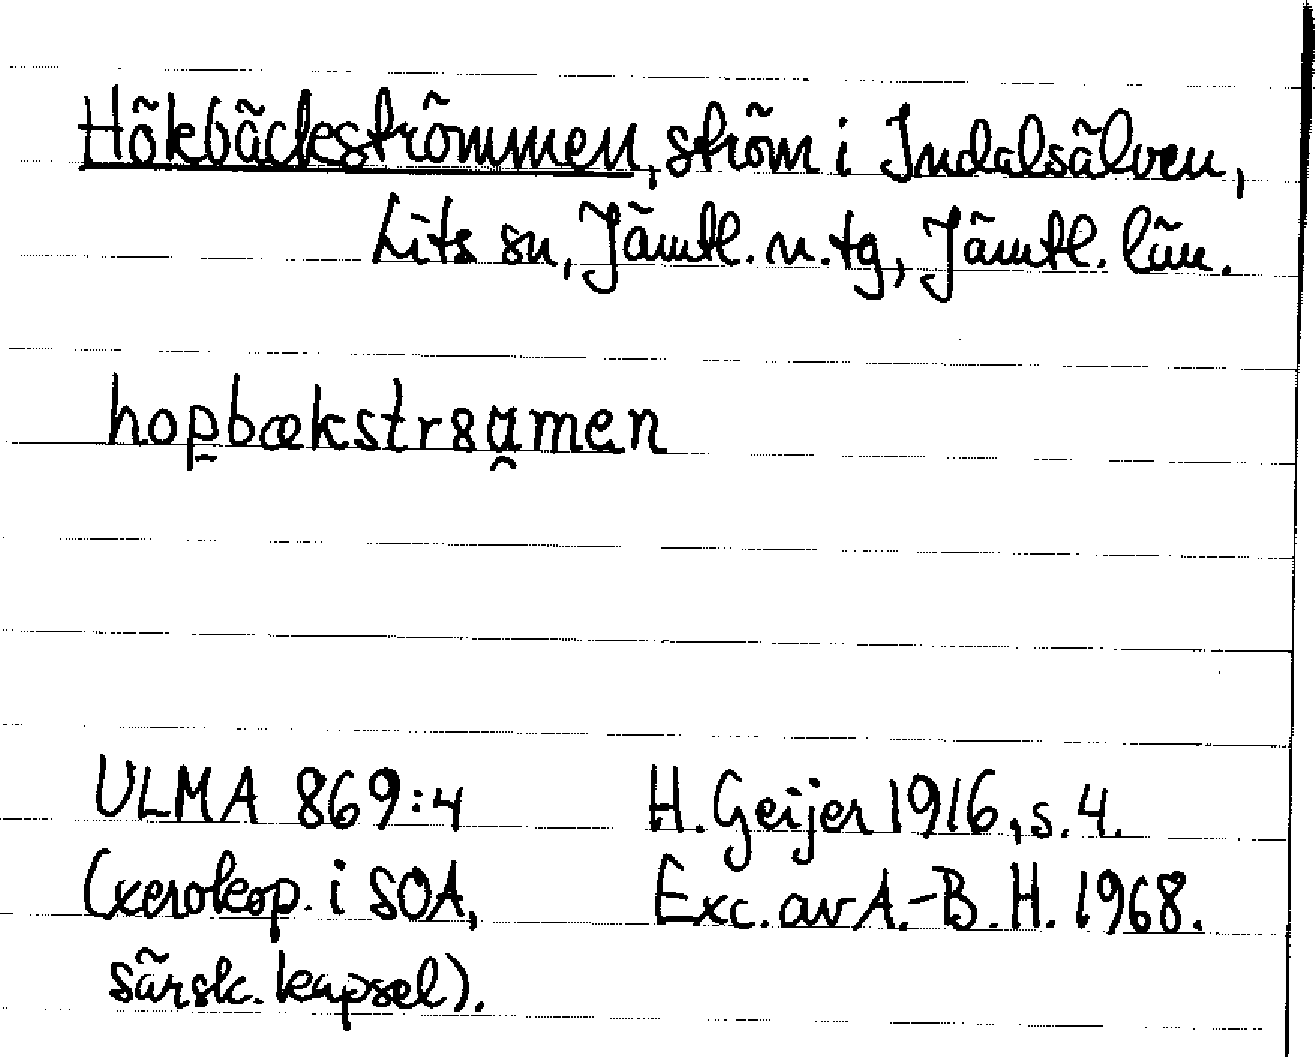 Hökbäckeströmmen, ström i Indalsälven,
Lits sn, Jämtl. n. tg, Jämtl. län.
hop̱bækstr8a̯men
ULMA 869:4
(xerokop. i SOA,
särsk. kapsel).
H. Geijer 1916, s. 4.
Exc. av A.-B. H. 1968.